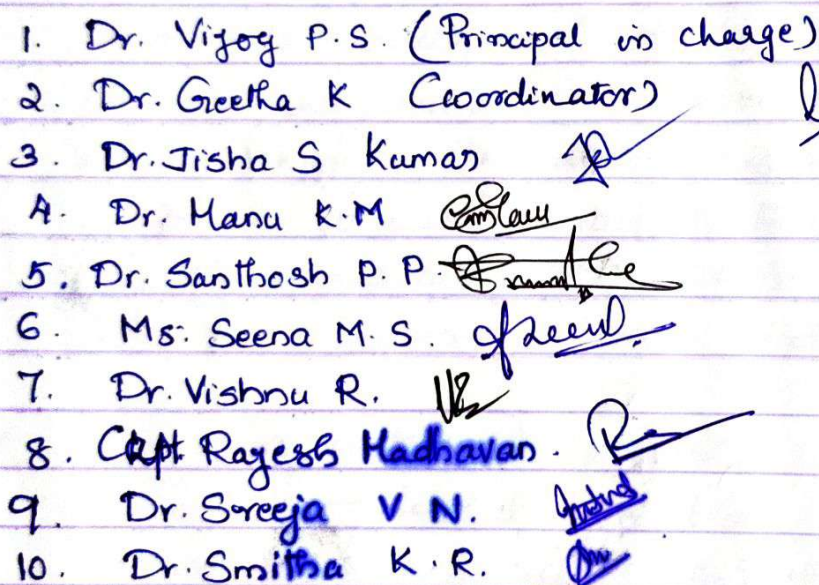 1. Dr. Vijoy P.S. (Principal in charge)
2. Dr. Geetha K (Coordinator)
3. Dr. Jisha S Kumar
4. Dr. Manu K.M
5. Dr. Santhosh P. P.
6. Ms. Seena M. S.
7. Dr. Vishnu R.
8. Capt Rajesh Madhavan.
9. Dr. Sreeja V N.
10. Dr. Smitha K. R.